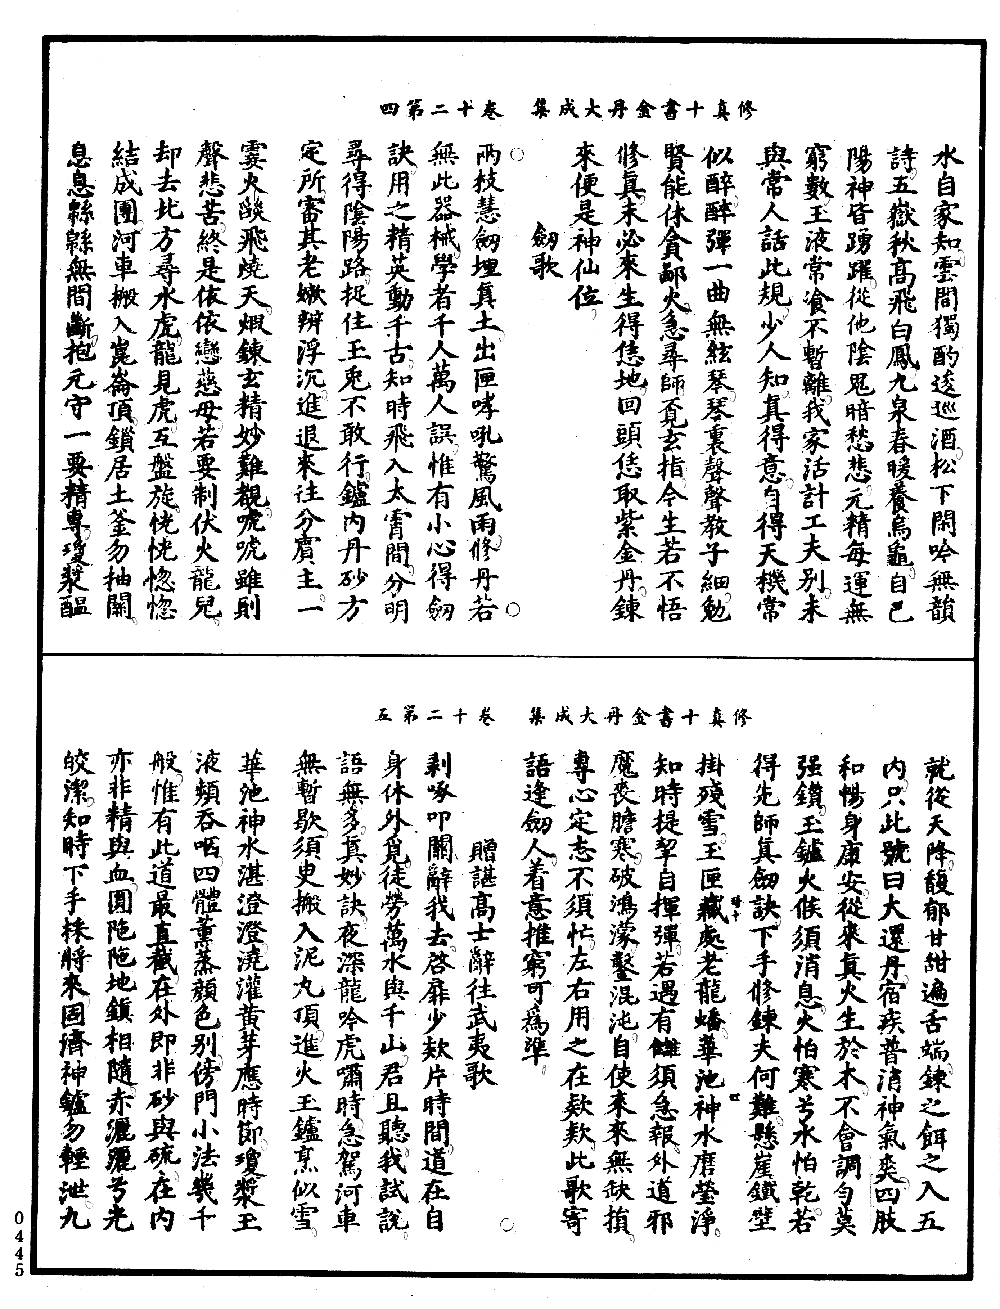 修真十書金丹大成集　卷十二第四
水自家知雲間獨酌逡巡酒松下閑吟無韻
詩五嶽秋高飛白鳳九泉春暖養烏龜自己
陽神皆踴躍從他陰鬼暗愁悲元精每運無
窮數玉液常飡不暫離我家活計工夫別未
與常人話此規少人知真得意自得天機常
似醉醉彈一曲無絃琴琴裏聲聲教子細勉
賢能休貪鄙火急尋師覓玄指今生若不悟
修真未必來生得恁地回頭恁取紫金丹鍊
來便是神仙位
劒歌
兩枝慧劒埋真土出匣哮吼驚風雨修丹若
無此器械學者千人萬人誤惟有小心得劒
訣用之精英動千古知時飛入太霄間分明
尋得陰陽路捉住玉兎不敢行鑪内丹砂方
定所審其老嫰辨浮沉進退來往分賔主一
霎火燄飛燒天煆鍊玄精妙難覩唬唬雖則
聲悲苦終是依依戀慈母若要制伏火龍兒
却去北方尋水虎龍見虎互盤旋恍恍惚惚
結成團河車搬入崑崙頂鎖居土釜勿抽關
息息緜緜無間斷抱元守一要精專瓊漿醖
修真十書金丹大成集　卷十二第五
就從天降馥郁甘甜遍舌端鍊之餌之入五
内只此號曰大還丹宿疾普消神氣爽四肢
和暢身康安從來真火生於木不會調勻莫
强鑽玉鑪火候須消息火怕寒兮水怕乾若
得先師真劒訣下手修鍊夫何難懸崖鐵壁
掛殘雪玉匣藏處老龍蟠華池神水磨瑩淨
知時提挈自揮彈若遇有讎須急報外道邪
魔喪膽寒破鴻濛鑿混沌自使來來無缺損
專心定志不須忙左右用之在欵欵此歌寄
語逢劒人着意推窮可爲準
贈諶高士辭往武夷歌
剥啄叩關辭我去啓扉少欵片時間道在自
身休外覓徒勞萬水與千山君且聽我試說
語無多真妙訣夜深龍吟虎嘯時急駕河車
無暫歇須臾搬入泥丸頂進火玉鑪烹似雪
華池神水湛澄澄澆灌黄芽應時節瓊漿玉
液頻吞咽四體薰蒸顔色别傍門小法幾千
般惟有此道最直截在外即非砂與硫在内
亦非精與血圓陁陁地鎮相隨赤灑灑兮光
皎潔知時下手採將來固濟神鑪勿輕泄九
0445